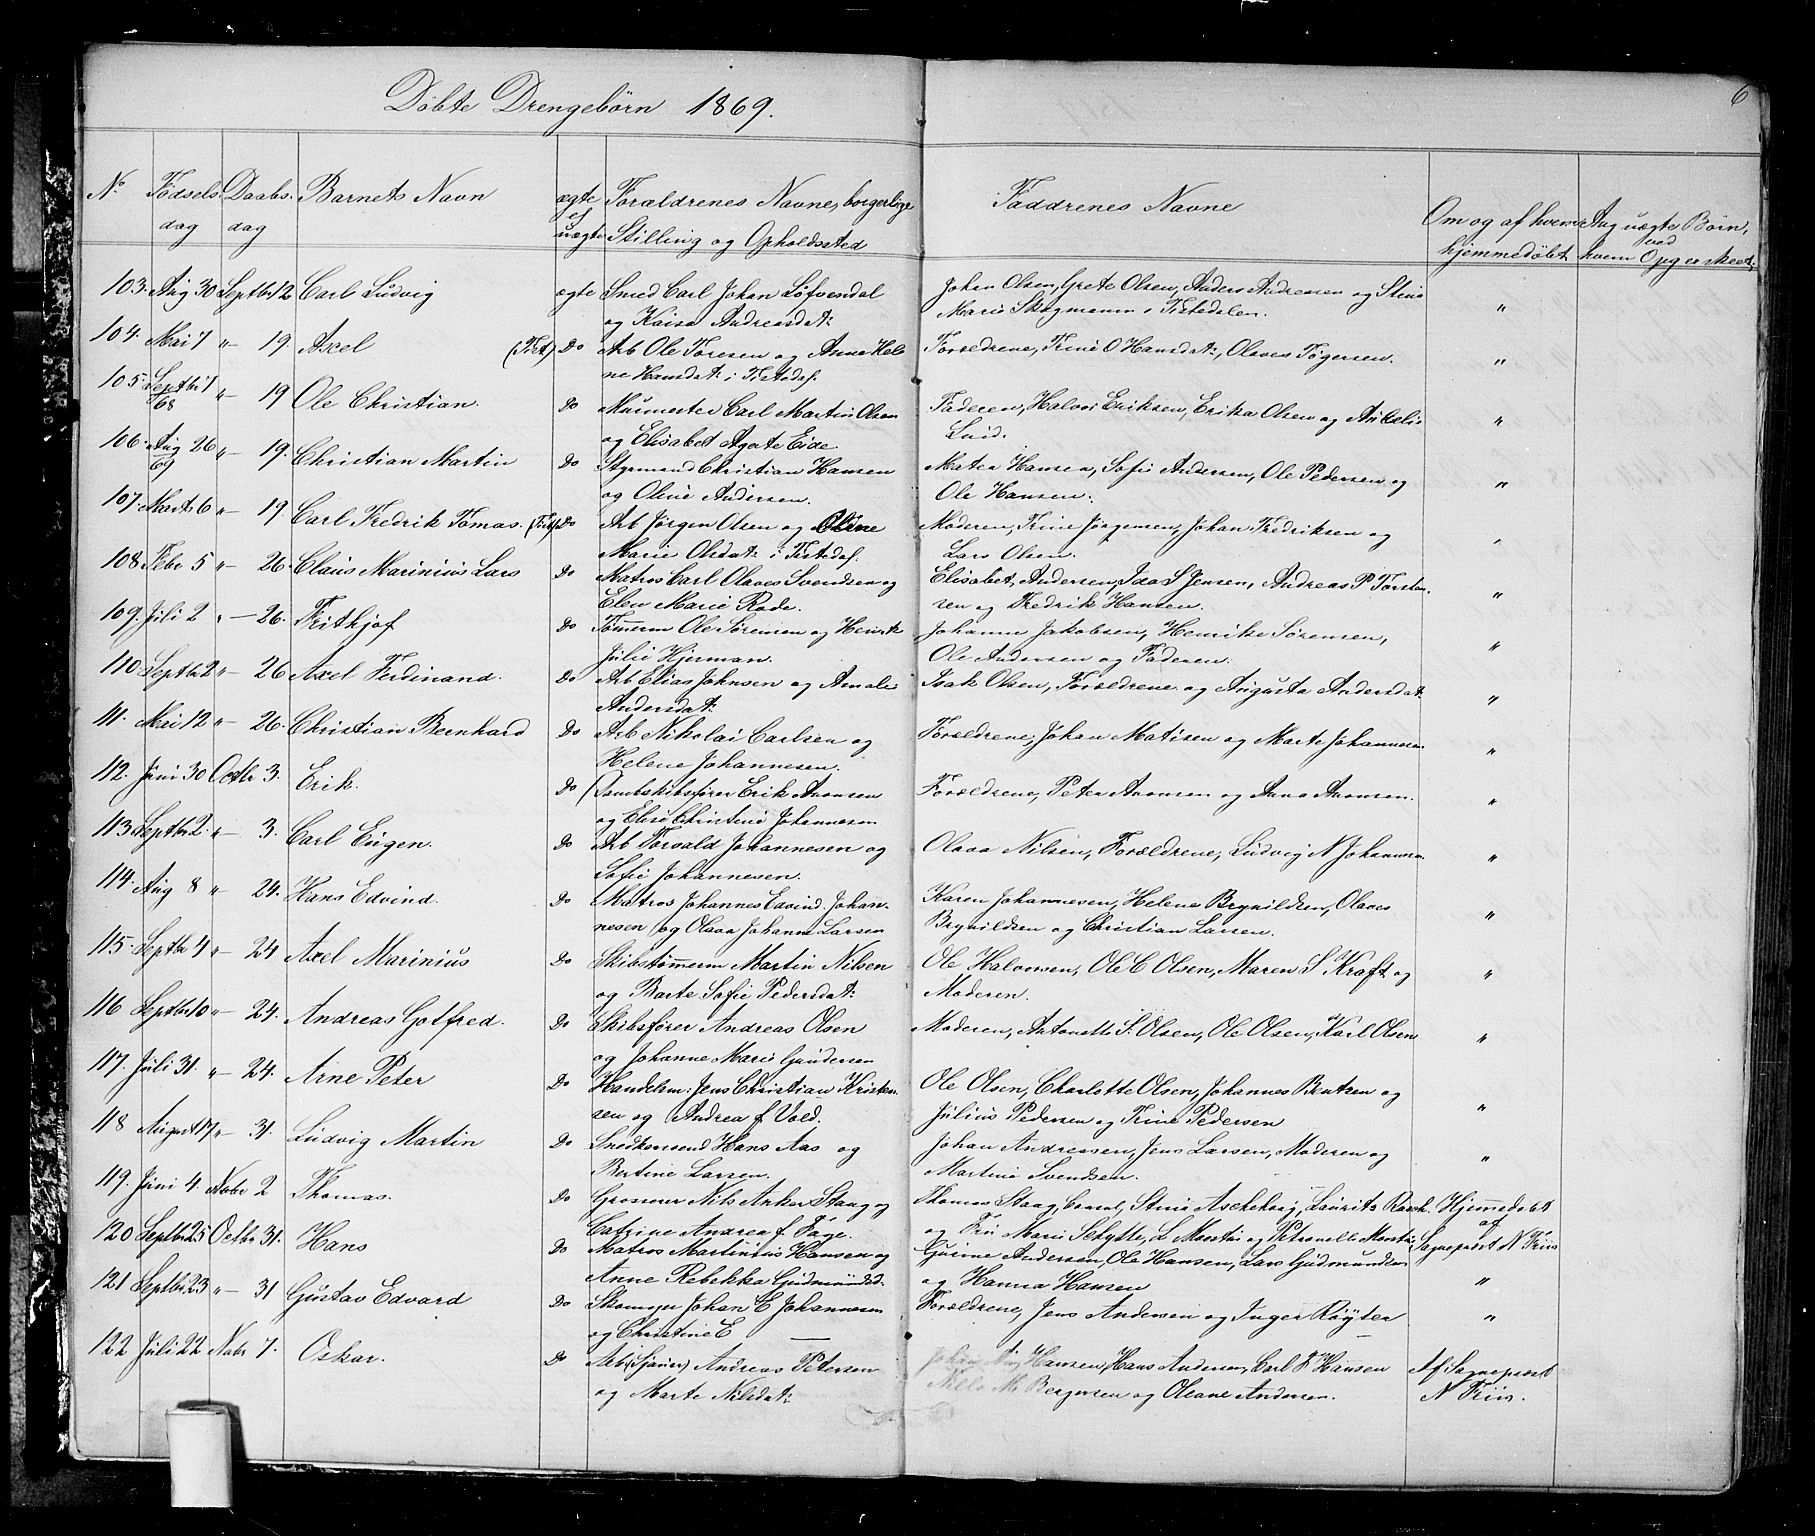 6
Döbte Drengebörn 1869.
No Födsels Daabs Barnets Navn ægte Forældrenes Navne, borgerlige Faddrenes Navne Om og af hvem Ang uægte Börn,
dag dag el uægte Stilling og Opholdssted hjemmedöbt ved hvem Opg er skeet.
103. Aug 30 Septbr 12 Carl Ludvig ægte Smed Carl Johan Löfvendal Johan Olsen, Grete Olsen, Anders Andresen og Stina
og Kaisa Andreasdat: Marie Skogmann i Tistedalen. "
104. Mai 7 " 19. Axel (Tist) Do Arb Ole Toresen og Anne Hele Forældrene, Trine O Hansdat:, Olaves Tögersen. "
ne Hansdat: i Tistedal.
105. Septbr 7 68 " 19 Ole Christian. Do Murmester Carl Martin Olsen Faderen, Halvor Eriksen, Erika Olsen og
og Elisabet Agate Eide. "
106. Aug 26 69 " 19. Christian Martin Do Styrmand Christian Hansen Matea Hansen, Sofie Andersen, Ole Pedersen og
og Oline Andersen. Ole Hansen. "
107. Marts 6 " 19. Carl Fredrik Tomas. (Tist) Do Arb Jörgen Olsen og Oline Moderen, Trine Jörgensen, Johan Fredriksen og
Marie Olsdat: i Tistedal. Lars Olsen. "
108. Febr 5 " 26. Claus Marinius Lars Do Matros Carl Olaves Svendsen og Elisabet Andersen, Ida S Jensen, Andreas P Torsten
Elen Marie Rode. sen og Fredrik Hansen. "
109. Juli 2 " 26. Frithjof Do Tömerm Ole Sörensen og Henrik Johanne Jakobsen, Henrike Sörensen,
Julie Hjerman. Ole Andersen og Faderen. "
110. Septbr 2 " 26 Axel Ferdinand. Do Arb Elias Johnsen og Amalie Isak Olsen, Forældrene og Augusta Andersdat:
Andersdat: "
111. Mai 12 " 26. Christian Bernhard Do Arb Nikolai Carlsen og Forældrene, Johan Matisen og Marte Johannesen
Helene Johannesen. "
112. Juni 30 Octbr 3. Erik. Do Dambskibsförer Erik Aronsen Forældrene, Peter Aronsen og Anna Aronsen.
og Elise Christine Johannesen "
113. Septbr 2. " 3. Carl Eugen. Do Arb Torvald Johannesen og Olava Nilsen, Forældrene, Ludvig N Johannesen
Sofie Johannesen. "
114. Aug 8 " 24. Hans Edvind. Do Matros Johannes Edvind Johan- Karen Johannesen, Helene Brynildsen, Olaves
nesen og Olava Johanne Larsen Brynildsen og Christian Larsen. "
115. Septbr 4 " 24 Axel Marinius Do Skibstömerm Martin Nilsen Ole Halvorsen, Ole C Olsen, Maren S Kraft og
og Barte Sofie Pedersdat: Moderen. "
116 Septbr 10 " 24. Andreas Gotfred. Do Skibsförer Andreas Olsen Moderen, Antonette S. Olsen, Ole Olsen, Karl Olsen
og Johanne Marie Gundersen "
117. Juli 31. " 24. Arne Peter Do Handelsm: Jens Christian Kristen- Ole Olsen, Charlotte Olsen, Johannes Bentsen og
sen og Andrea f. Vold. Julius Pedersen og Trine Pedersen "
118 August 17 " 31. Ludvig Martin Do Snedkersvend Hans Aas og Johan Andresen, Jens Larsen, Moderen og
Bertine Larsen. Martine Svendsen. "
119. Juni 4. Novbr 2 Thomas. Do Grosserer Nils Anker Stang og Thomas Stang, Consul, Stina Aschehoug, Laurits Rasch. Hjemmedöbt
Catrine Andrea f. Fage. og Fru Marie Schytte, L Monstü og Petronelle Monstü af Sogneprest N Friis
120 Septbr 25 Octbr 31. Hans Do Matros Martinius Hansen og Gurine Andersen, Ole Hansen, Lars Gudmundsen
Anne Rebekka Gudmundsd. og Hanna Hansen "
121 Septbr 23 " 31 Gustav Edvard Do Skomager Johan E Johannesen Forældrene, Jens Andersen og Inger Röyter
og Christine E "
122 Juli 22 Novbr 7. Oskar. Do Arb (Sjauer) Andreas Petersen Johan Hansen, Hans Andersen, Carl F Hansen Af Sogneprest
og Marte Nilsdat: Nils M Bergersen og Oleane Andersen. N Friis.